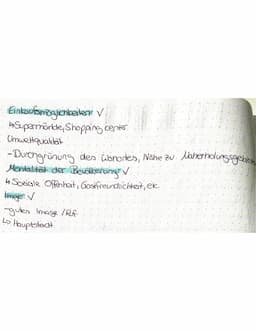 Einkaufsmöglichkeiten ✓
↳ Supermärkte, Shopping center
Umweltqualität
- Durchgrünung des Wohnortes, Nähe zu Naherholungsgebieten
Mentalität der Bevölkerung ✓
↳ Soziale Offenheit, Gastfreundlichkeit, etc
Image ✓
- gutes Image / Ruf
↳ Hauptstadt